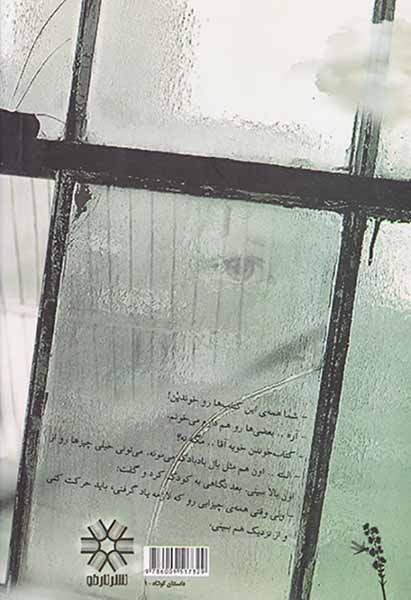 - شما همه‌ی این کتاب‌ها رو خوندین!
- آره .. بعضی‌ها رو هم دارم می‌خونم.
- کتاب‌خوندن خوبه آقا .. مگه نه؟
- البته .. اون هم مثل بال بادبادک می‌مونه. می‌تونی خیلی چیزها رو از
اون بالا ببینی. بعد نگاهی به کودک کرد و گفت:
- ولی وقتی همه‌ی چیزایی رو که لازمه یاد گرفتی، باید حرکت کنی
و از نزدیک هم ببینی.
داستان کوتاه - ۹